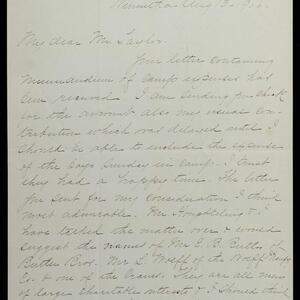 Winnetka Aug 13. 190
My dear Mr. Taylor.
Your letter containing
memorandum of camp expenses has
been received. I am sending you check
for the amount also my usual con-
tribution which was delayed until I
should be able to include the expense
of the boys Sunday in camp. I trust
they had a happy time. The letter
you sent for my consideration I think
most admirable. Mr. Houghteling & I
have talked the matter over & would
suggest the names of Mr. E. B. Butler of
Butler Bros. Mr. L. Wolff of the Wolff Manfg
Co. & one of the Cranes. They are all men
of large charitable interests & I should think